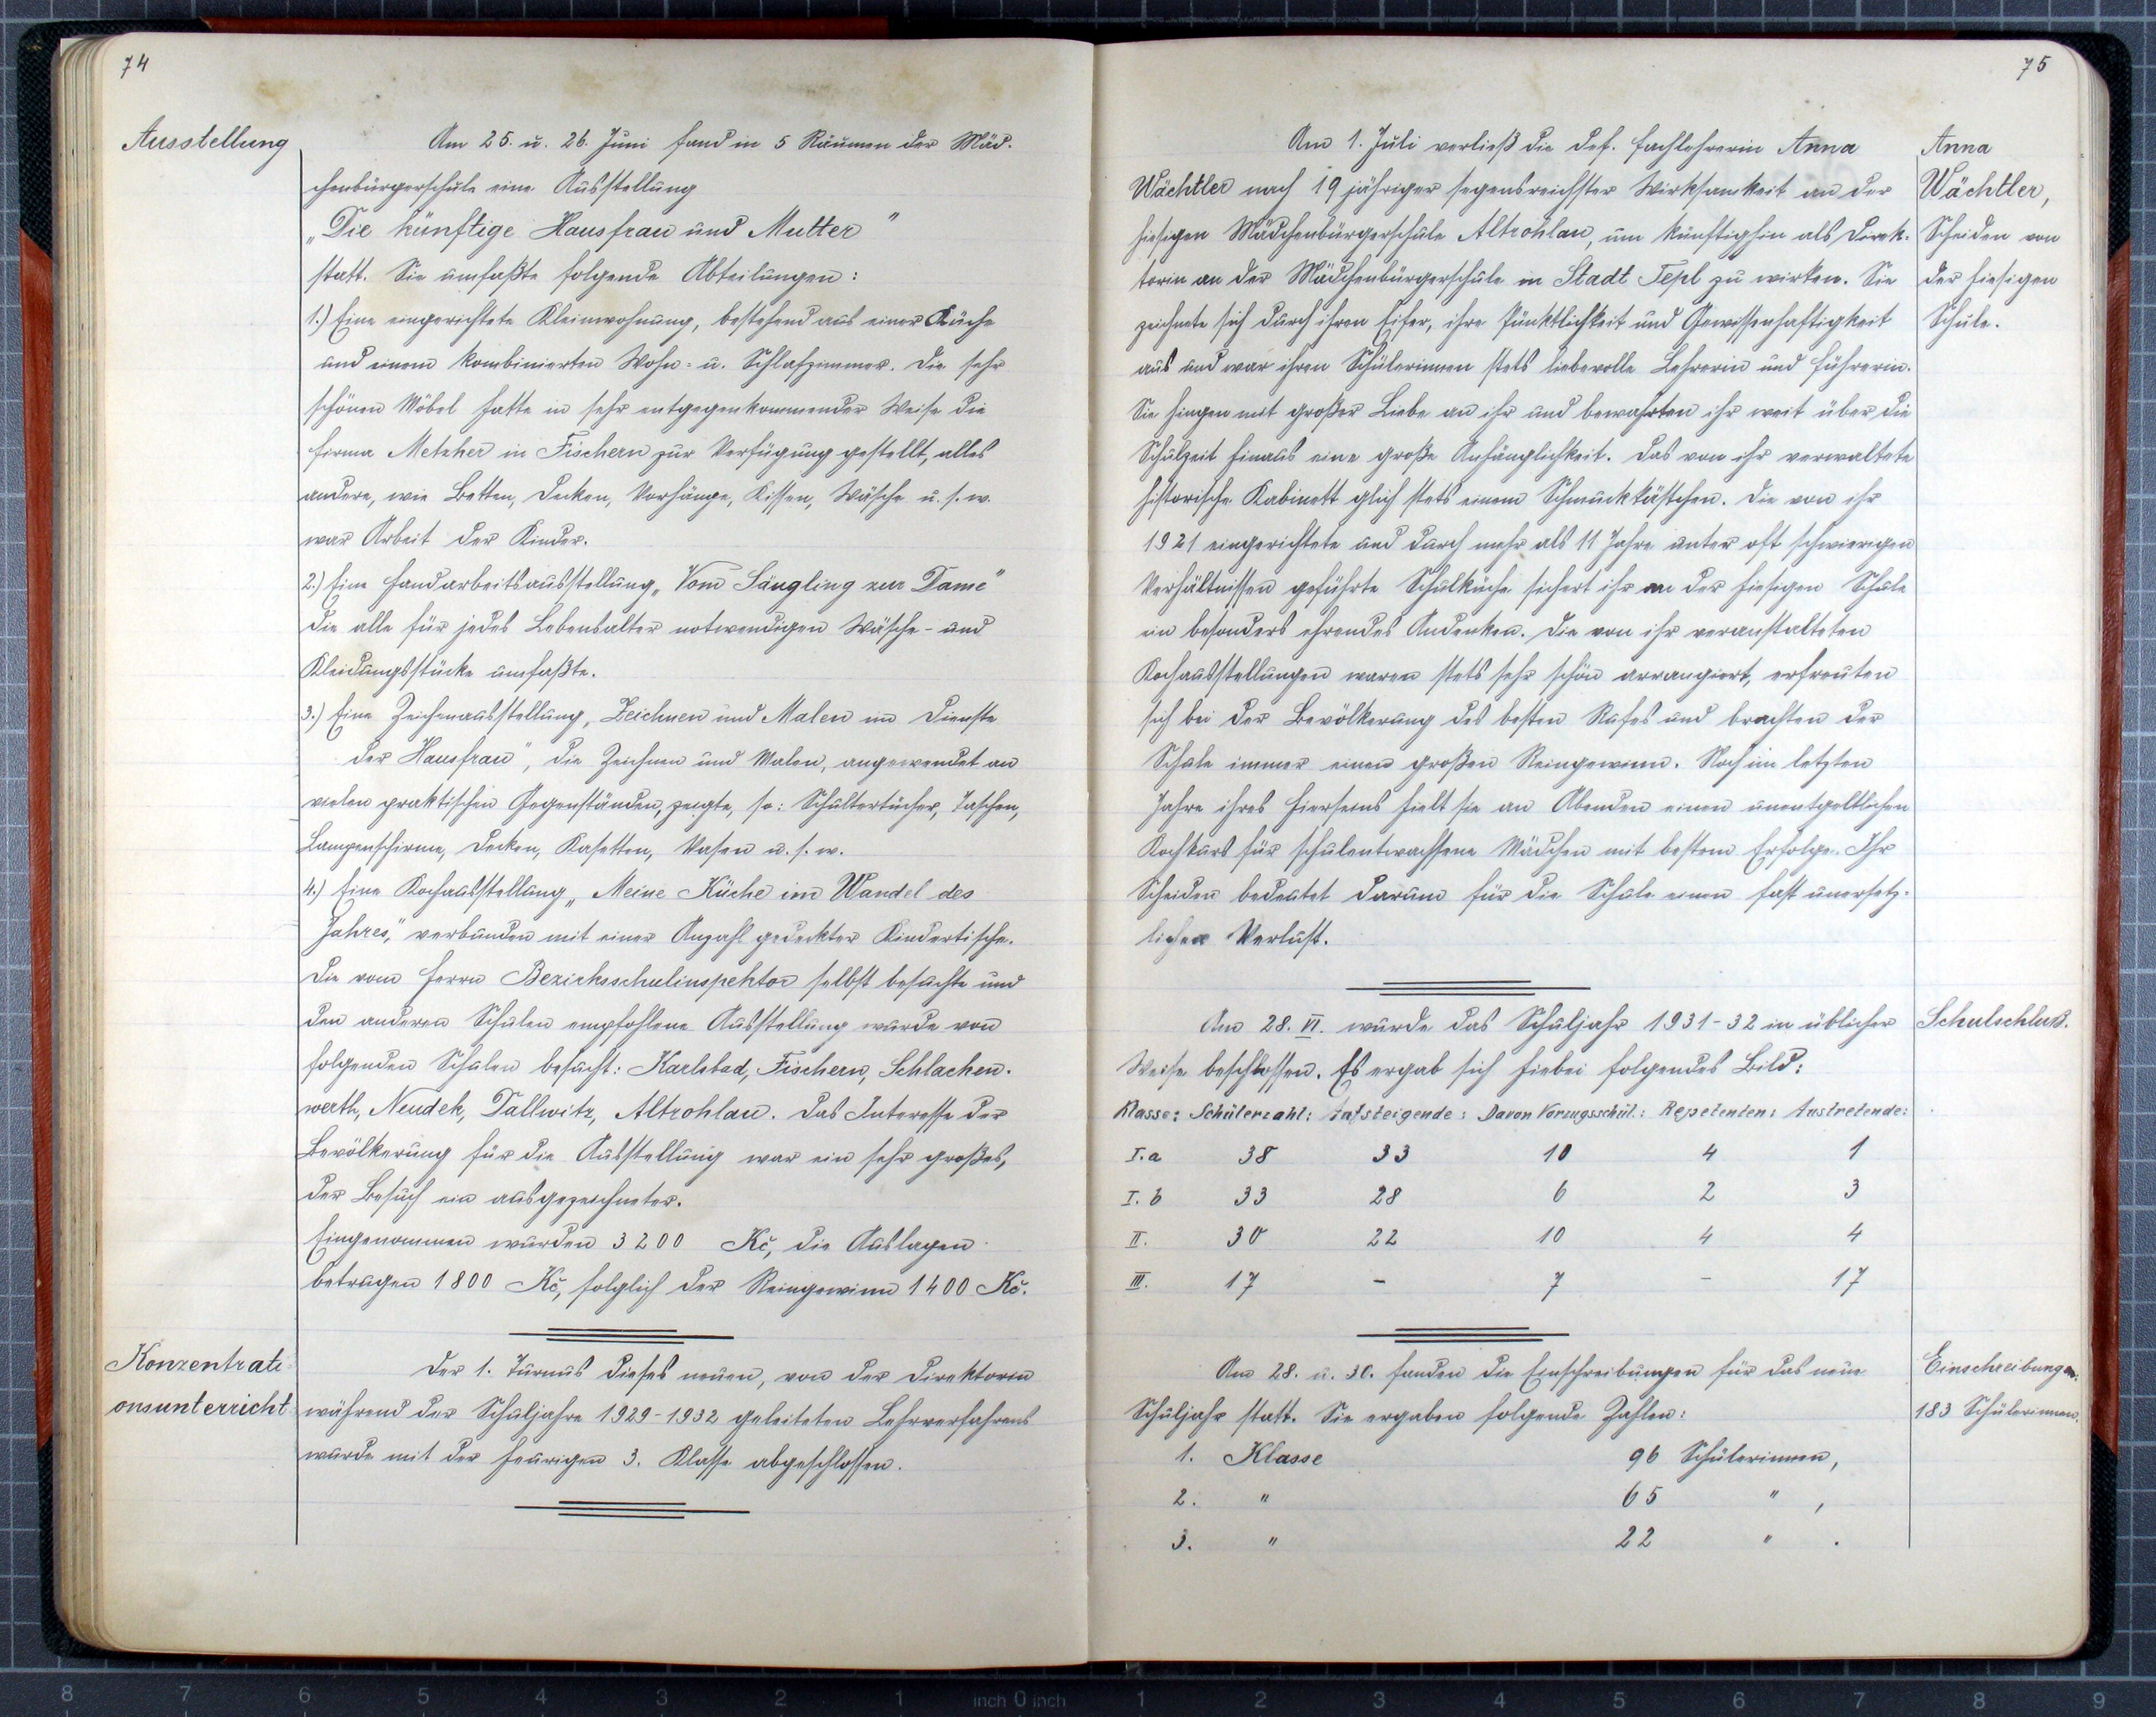 74
Ausstellung
Am 25. u. 26. Juni fand in 5 Räumen der Mäd-
chenbürgerschule eine Ausstellung
„Die künftige Hausfrau und Mutter"
statt. Sie umfaßte folgende Abteilungen:
1.) Eine eingerichtete Kleinwohnung, bestehend aus einer Küche
und einem kombinierten Wohn- u. Schlafzimmer. Die sehr
schönen Möbel hatte in sehr entgegenkommender Weise die
Firma Metzher in Fischern zur Verfügung gestellt, alles
andere, wie Betten, Decken, Vorhänge, Kissen, Wäsche u. s. w.
war Arbeit der Kinder.
2.) Eine Handarbeitsausstellung „Vom Säugling zur Dame"
die alle für jedes Lebensalter notwendigen Wäsche- und
Kleidungsstücke umfaßte.
3.) Eine Zeichenausstellung „Zeichnen und Malen im Dienste
der Hausfrau", die Zeichnen und Malen, angewendet an
vielen praktischen Gegenständen, zeigte, so: Schultertücher, Taschen,
Lampenschirme, Decken, Kasetten, Vasen u. s. w.
4.) Eine Kochausstellung „Meine Küche im Wandel des
Jahres", verbunden mit einer Anzahl gedeckter Kindertische.
Die vom Herrn Bezirksschulinspektor selbst besuchte und
den anderen Schulen empfohlene Ausstellung wurde von
folgenden Schulen besucht: Karlsbad, Fischern, Schlacken-
werth, Neudek, Dallwitz, Altrohlau. Das Interesse der
Bevölkerung für die Ausstellung war ein sehr großes,
der Besuch ein ausgezeichneter.
Eingenommen wurden 3200 Kč, die Auslagen
betrugen 1800 Kč, folglich der Reingewinn 1400 Kč.
Konzentrati-
onsunterricht
Der 1. Turnus dieses neuen, von der Direktorin
während der Schuljahre 1929-1932 geleiteten Lehrverfahrens
wurde mit der heurigen 3. Klasse abgeschlossen.
75
Am 1. Juli verließ die def. Fachlehrerin Anna
Wächtler nach 19 jähriger segensreichster Wirksamkeit an der
hiesigen Mädchenbürgerschule Altrohlau, um künftighin als Direk-
torin an der Mädchenbürgerschule in Stadt Tepl zu wirken. Sie
zeichnete sich durch ihren Eifer, ihre Pünktlichkeit und Gewissenhaftigkeit
aus und war ihren Schülerinnen stets liebevolle Lehrerin und Führerin.
Sie hingen mit großer Liebe an ihr und bewahrten ihr weit über die
Schulzeit hinaus eine große Anhänglichkeit. Das von ihr verwaltete
historische Kabinett glich stets einem Schmuckkästchen. Die von ihr
1921 eingerichtete und durch mehr als 11 Jahre unter oft schwierigen
Verhältnissen geführte Schulküche sichert ihr an der hiesigen Schule
ein besonders ehrendes Andenken. Die von ihr veranstalteten
Kochausstellungen waren stets sehr schön arrangiert, erfreuten
sich bei der Bevölkerung des besten Rufes und brachten der
Schule immer einen großen Reingewinn. Noch im letzten
Jahre ihres Hierseins hielt sie an Abenden einen unentgeltlichen
Kochkurs für schulentwachsene Mädchen mit bestem Erfolge. Ihr
Scheiden bedeutet darum für die Schule einen fast unersetz-
lichen Verlust.
Anna
Wächtler,
Scheiden von
der hiesigen
Schule.
Am 28. VI. wurde das Schuljahr 1931-32 in üblicher
Weise beschlossen. Es ergab sich hiebei folgendes Bild:
Schulschluß.
Klasse: Schülerzahl: Aufsteigende: Davon Vorzugsschül.: Repetenten: Austretende:
I. a 38 33 10 4 1
I. b 33 28 6 2 3
II. 30 22 10 4 4
III. 17 - 7 - 17
Am 28. u. 30. fanden die Einschreibungen für das neue
Schuljahr statt. Sie ergaben folgende Zahlen:
1. Klasse 96 Schülerinnen,
2. " 65 " ,
3. " 22 " .
Einschreibungen.
183 Schülerinnen.
8 7 6 5 4 3 2 1 inch 0 inch 1 2 3 4 5 6 7 8 9